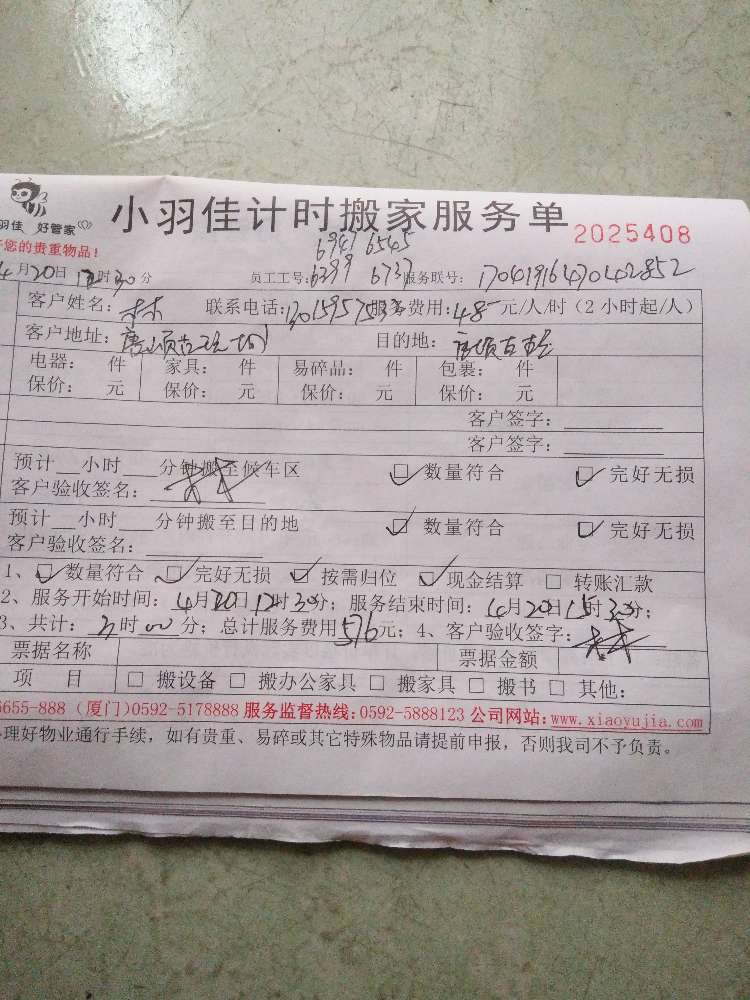 羽佳 好管家
小羽佳计时搬家服务单 2025408
您的贵重物品!
6947 6545
4月20日12时30分 员工工号:6399 6737 服务联号:17041916470402852
客户姓名:林 联系电话: 服务费用:48元/人/时(2小时起/人)
客户地址: 目的地:
电器: 件 家具: 件 易碎品: 件 包裹: 件
保价: 元 保价: 元 保价: 元 保价: 元
客户签字:
客户签字:
预计__小时___分钟搬至候车区 数量符合 完好无损
客户验收签名:
预计__小时___分钟搬至目的地 数量符合 完好无损
客户验收签名:
1、数量符合 完好无损 按需归位 现金结算 转账汇款
2、服务开始时间:4月20日12时30分;服务结束时间:4月20日15时30分;
3、共计:3时00分;总计服务费用576元;4、客户验收签字:
票据名称 票据金额
项 目 搬设备 搬办公家具 搬家具 搬书 其他:
5655-888(厦门)0592-5178888 服务监督热线:0592-5888123 公司网站:www.xiaoyujia.com
理好物业通行手续,如有贵重、易碎或其它特殊物品请提前申报,否则我司不予负责。